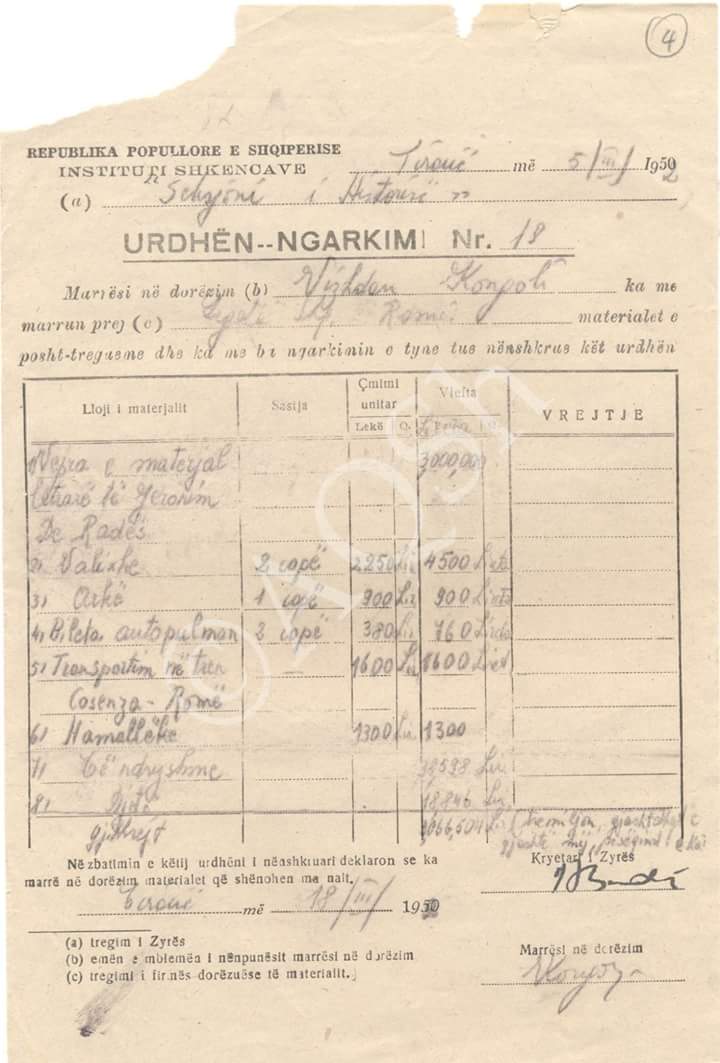 4
REPUBLIKA POPULLORE E SHQIPERISE
INSTITUTI SHKENCAVE
Tiranë më 5/III/ 1952
(a) Seksjoni i Historisë
URDHËN--NGARKIMI Nr. 18
Marrësi në dorëzim (b) Vizhdan Kongoli ka me
marrun prej (c) Romë materialet e
posht-tregueme dhe ka me ba ngarkimin e tyne tue nënshkrue kët urdhën
Lloji i materjalit Sasija Çmimi unitar Vlefta VREJTJE
Lekë Q.
1) Vepra e materjal 3000,000
letrarë të Jeronim
De Radës
2) Valixhe 2 copë 2.250 Lir 4500 Lireta
3) Arkë 1 copë 900 Lir 900 Lireta
4) Bileta autopulman 2 copë 380 Lir 760 Lireta
5) Transportim në tren — 1600 Lir 1600 Liret
Cosenza - Romë
6) Hamallëke 1300 Lir. 1300
7) Të ndryshme 38598 Lir.
8) Djetë 18,846 Lir.
gjithsejt 3066,504 Lir
Në zbatimin e këtij urdhëni i nënshkruari deklaron se ka
marrë në dorëzim materialet që shënohen ma nalt.
Kryetari i Zyrës
Tiranë më 18/III/ 1952
(a) tregim i Zyrës
(b) emën e mblemën i nënpunësit marrësi në dorëzim
(c) tregimi i firmës dorëzuëse të materialit.
Marrësi në dorëzim
©AQSh